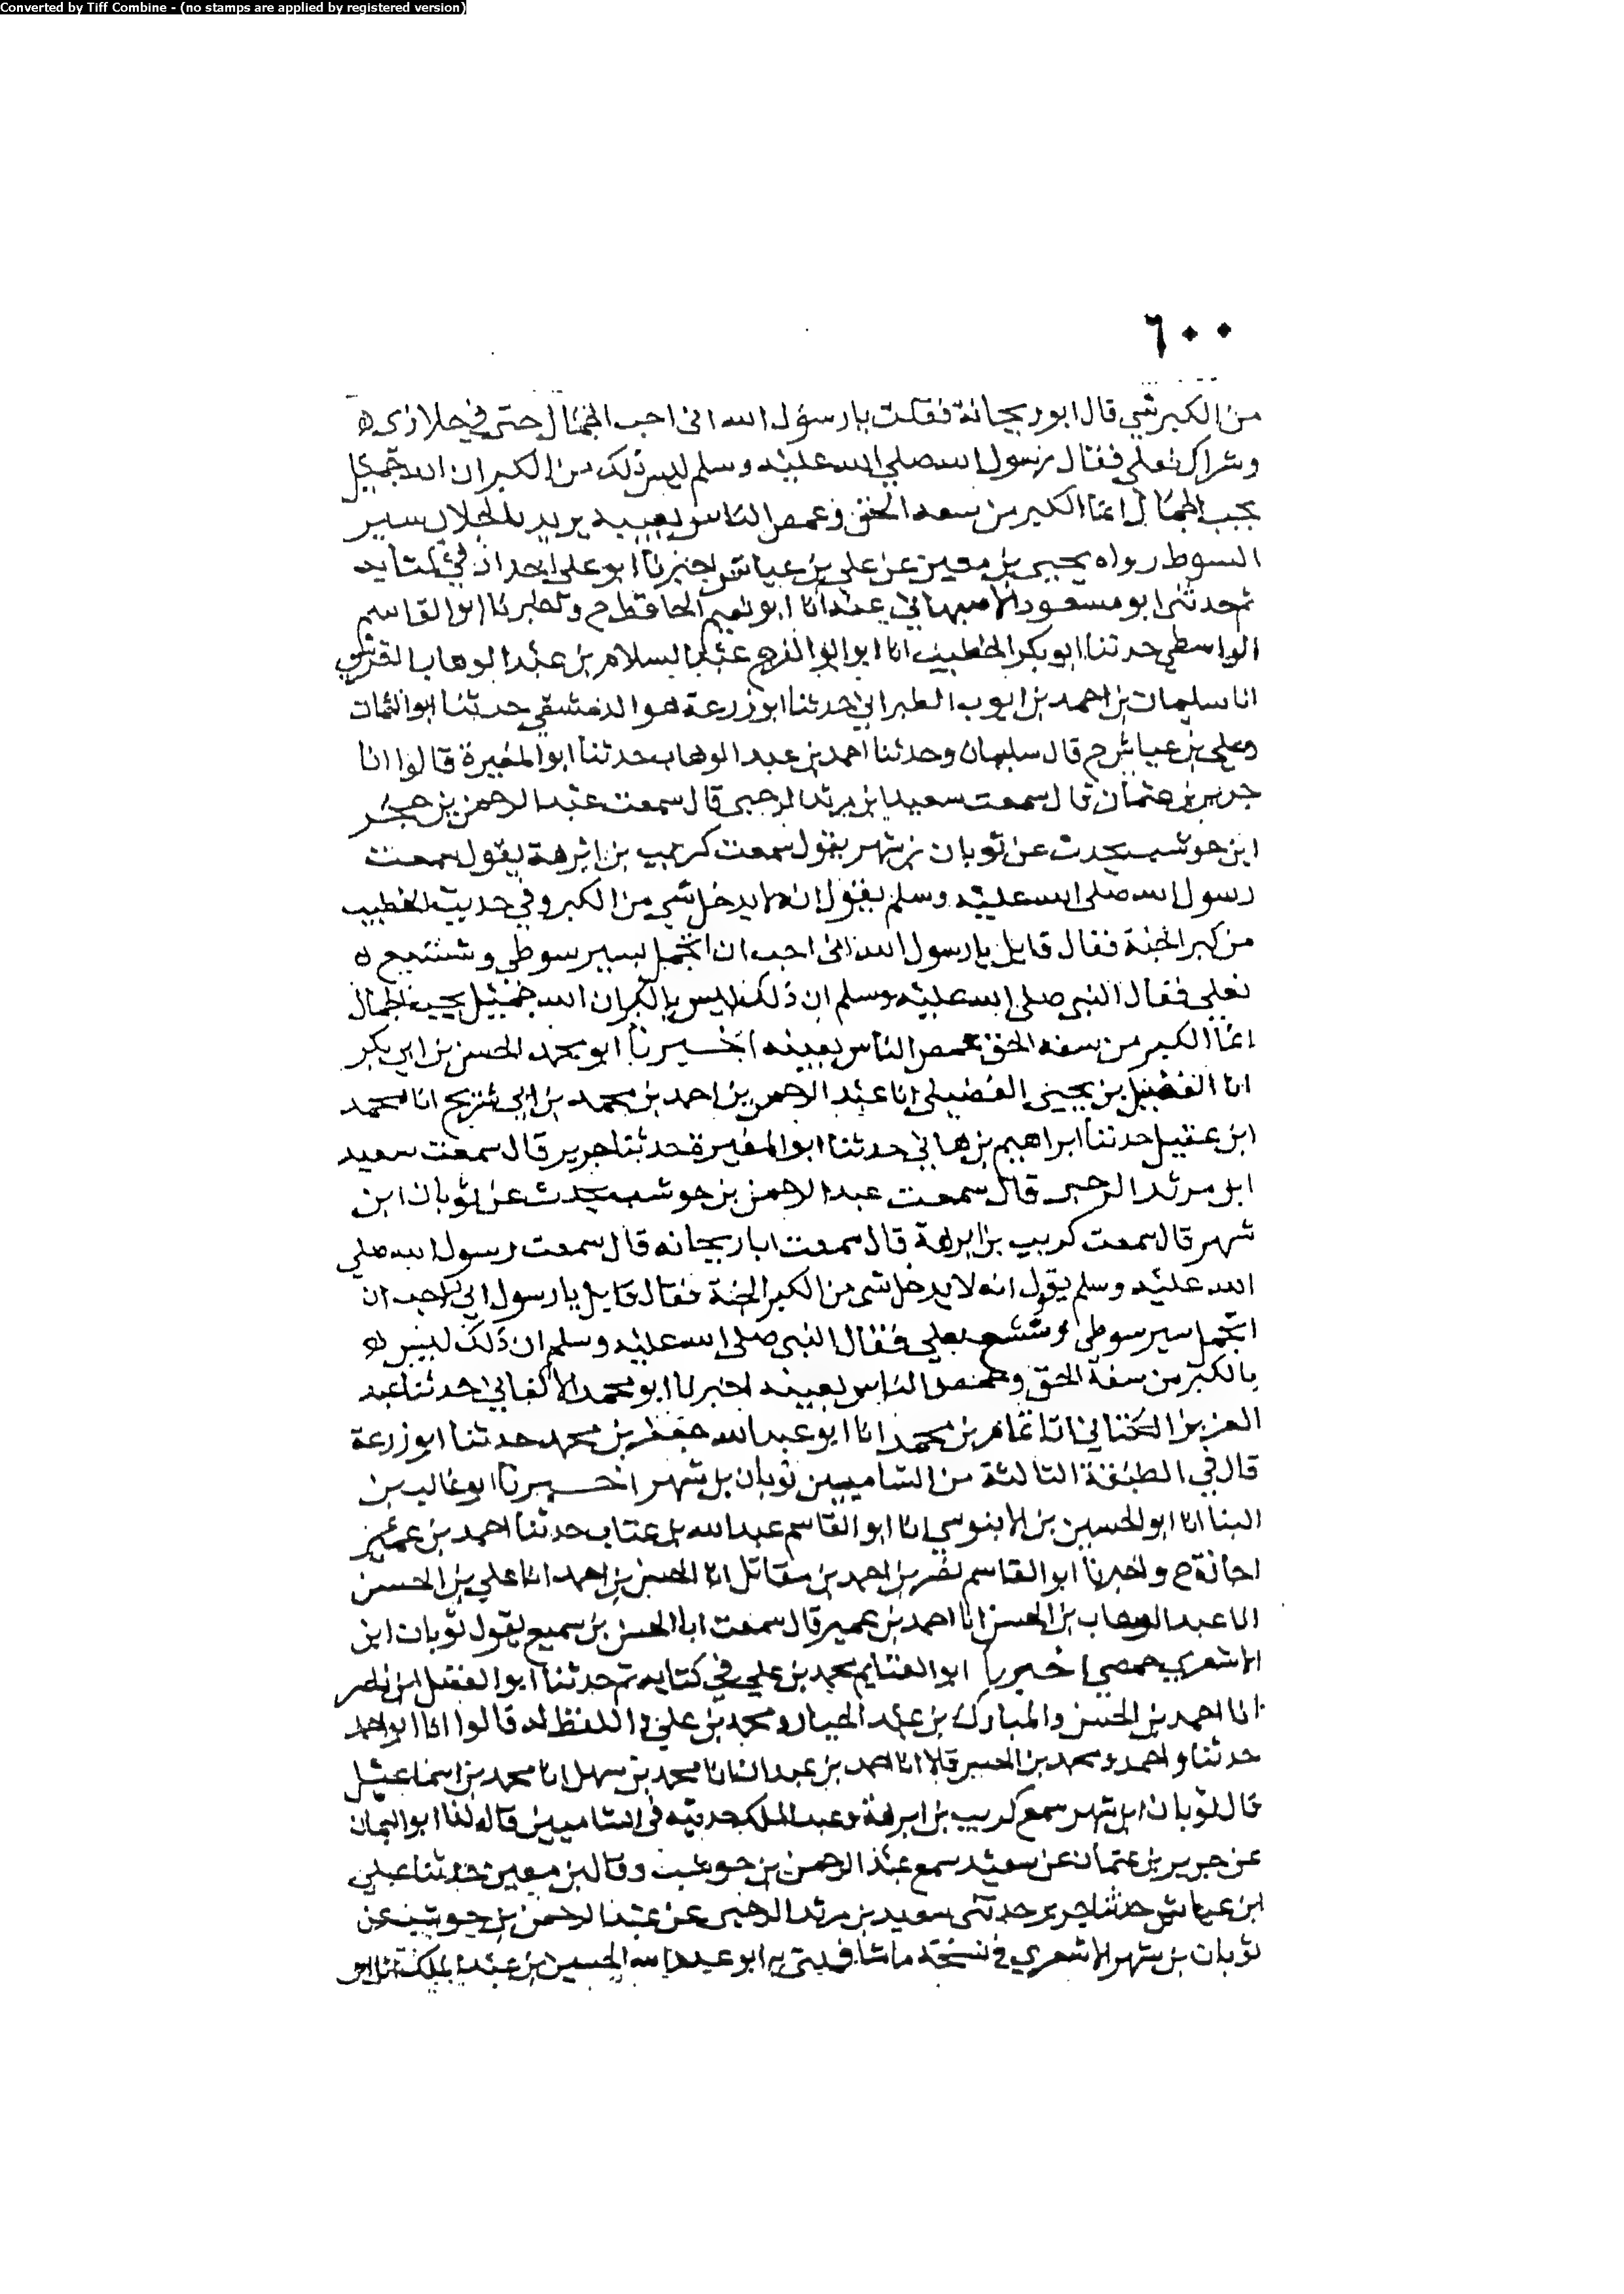 Converted by Tiff Combine - (no stamps are applied by registered version)
٦٠٠
من الكبر شي قال ابو ريحانة فقلت يا رسول الله اني احب الجمال حتى في جلازي
وشراك نعلي فقال رسول الله صلى الله عليه وسلم ليس ذلك من الكبر ان الله جميل
يحب الجمال انما الكبر من سفه الحق وغمص الناس بعينيه يريد بالجلاز سير
السوط رواه يحيى بن معين عن علي بن عياش اخبرنا ابو علي الحداد في كتابه
ثم حدثني ابو مسعود الاصبهاني عنه انا ابو نعيم الحافظ ح واخبرنا ابو القاسم
الواسطي حدثنا ابو بكر الخطيب انا ابو الفرج عبد السلام بن عبد الوهاب القرشي
انا سليمان بن احمد بن ايوب الطبراني حدثنا ابو زرعة هو الدمشقي حدثنا ابو اليمان
وعلي بن عياش ح قال سليمان وحدثنا احمد بن عبد الوهاب حدثنا ابو المغيرة قالوا انا
جرير بن عثمان قال سمعت سعيد ابن مرثد الرحبي قال سمعت عبد الرحمن بن
ابن حوشب يحدث عن ثوبان بن شهر يقول سمعت كريب بن ابرهة يقول سمعت
رسول الله صلى الله عليه وسلم يقول انه لا يدخل شي من الكبر وفي حديث الخطيب
من كبر الجنة فقال قايل يا رسول الله اني احب ان اتجمل بسير سوطي وشسع
نعلي فقال النبي صلى الله عليه وسلم ان ذلك ليس بالكبر ان الله جميل يحب الجمال
انما الكبر من سفه الحق غمص الناس بعينه اخبرنا ابو محمد الحسن بن ابي بكر
انا الفضيل بن يحيى الفضيلي انا عبد الرحمن بن احمد بن محمد بن ابي شريح انا محمد
ابن عقيل حدثنا ابراهيم بن هاني حدثنا ابو المغيرة حدثنا جرير قال سمعت سعيد
ابن مرثد الرحبي قال سمعت عبد الرحمن بن حوشب يحدث عن ثوبان ابن
شهر قال سمعت كريب بن ابرهة قال سمعت ابا ريحانه قال سمعت رسول الله صلى
الله عليه وسلم يقول انه لا يدخل شي من الكبر الجنة فقال قايل يا رسول اني احب ان
اتجمل سير سوطي وشسع نعلي فقال النبي صلى الله عليه وسلم ان ذلك ليس
بالكبر من سفه الحق وغمص الناس بعينه اخبرنا ابو محمد الاكفاني حدثنا عبد
العزيز الكتاني انا تمام بن محمد انا ابو عبد الله جعفر بن محمد حدثنا ابو زرعة
قال في الطبقة الثالثة من الشاميين ثوبان بن شهر اخبرنا ابو غالب بن
البنا انا ابو الحسين بن الابنوسي انا ابو القاسم عبد الله بن عتاب حدثنا احمد بن عمير
اجازة ح واخبرنا ابو القاسم نصر بن احمد بن مقاتل انا الحسن بن احمد انا علي بن الحسن
انا عبد الوهاب بن الحسن انا احمد بن عمير قال سمعت ابا الحسن بن سميع يقول ثوبان ابن
الاشعري حمصي اخبرنا ابو الغنايم محمد بن علي في كتابه ثم حدثنا ابو الفضل ابن ناصر
انا احمد بن الحسن والمبارك بن عبد الجبار ومحمد بن علي واللفظ له قالوا انا ابو احمد
حدثنا واحمد ومحمد بن الحسن قالا انا احمد بن عبدان انا محمد بن سهل انا محمد بن اسماعيل
قال ثوبان ابن شهر سمع كريب بن ابرهة وعبد الملك حديثه في الشاميين قال لنا ابو اليمان
عن جرير بن عثمان عن سعيد سمع عبد الرحمن بن حوشب وقال بن معين حدثنا علي
ابن عياش حدثنا جرير حدثني سعيد بن مرثد الرحبي عن عبد الرحمن بن حوشب عن
ثوبان بن شهر الاشعري في نسخة ما شافهني به ابو عبد الله الحسين بن عبد الملك انا